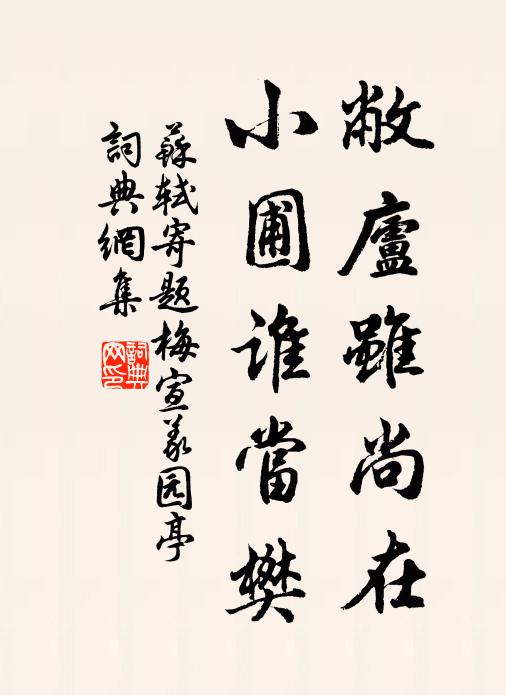 敝廬雖尚在
小圃誰當樊
蘇軾寄题梅宣義园亭
詞典網集
詞典网印